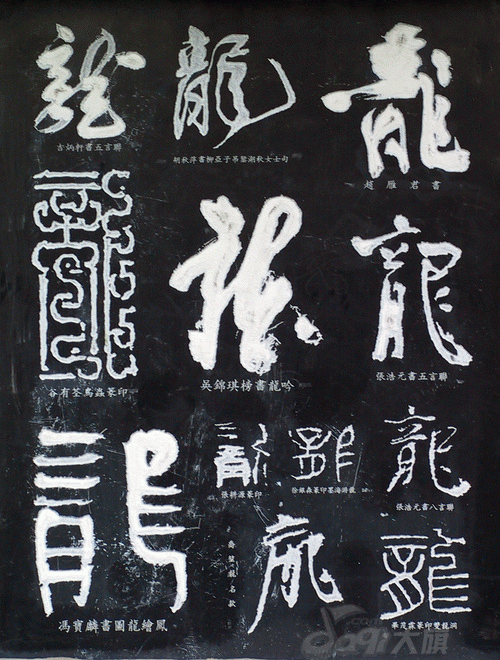 龍
龍
龍
吉炳軒書五言聯
胡秋萍書柳亞子吊鑒湖秋女士句
趙雁君書
龍
龍
龍
谷有荃鳥蟲篆印
吳錦琪榜書龍吟
張浩元書五言聯
龍
龍
龍
龍
張耕源篆印
徐銀森篆印墨海游龍
張浩元書八言聯
龍
龍
龍名款
馮寶麟書圖龍繪鳳
篆印雙龍洞
daqi.com大旗